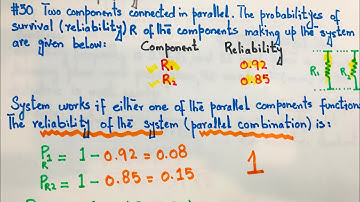 #30 Two components connected in parallel. The probabilities of
survival (reliability) R of the components making up the system
are given below:
Component Reliability
R1 0.92
R2 0.85
R1 R2
System works if either one of the parallel components function
The reliability of the system (parallel combination) is:
P1 = 1 - 0.92 = 0.08
R
PR2 = 1 - 0.85 = 0.15
1